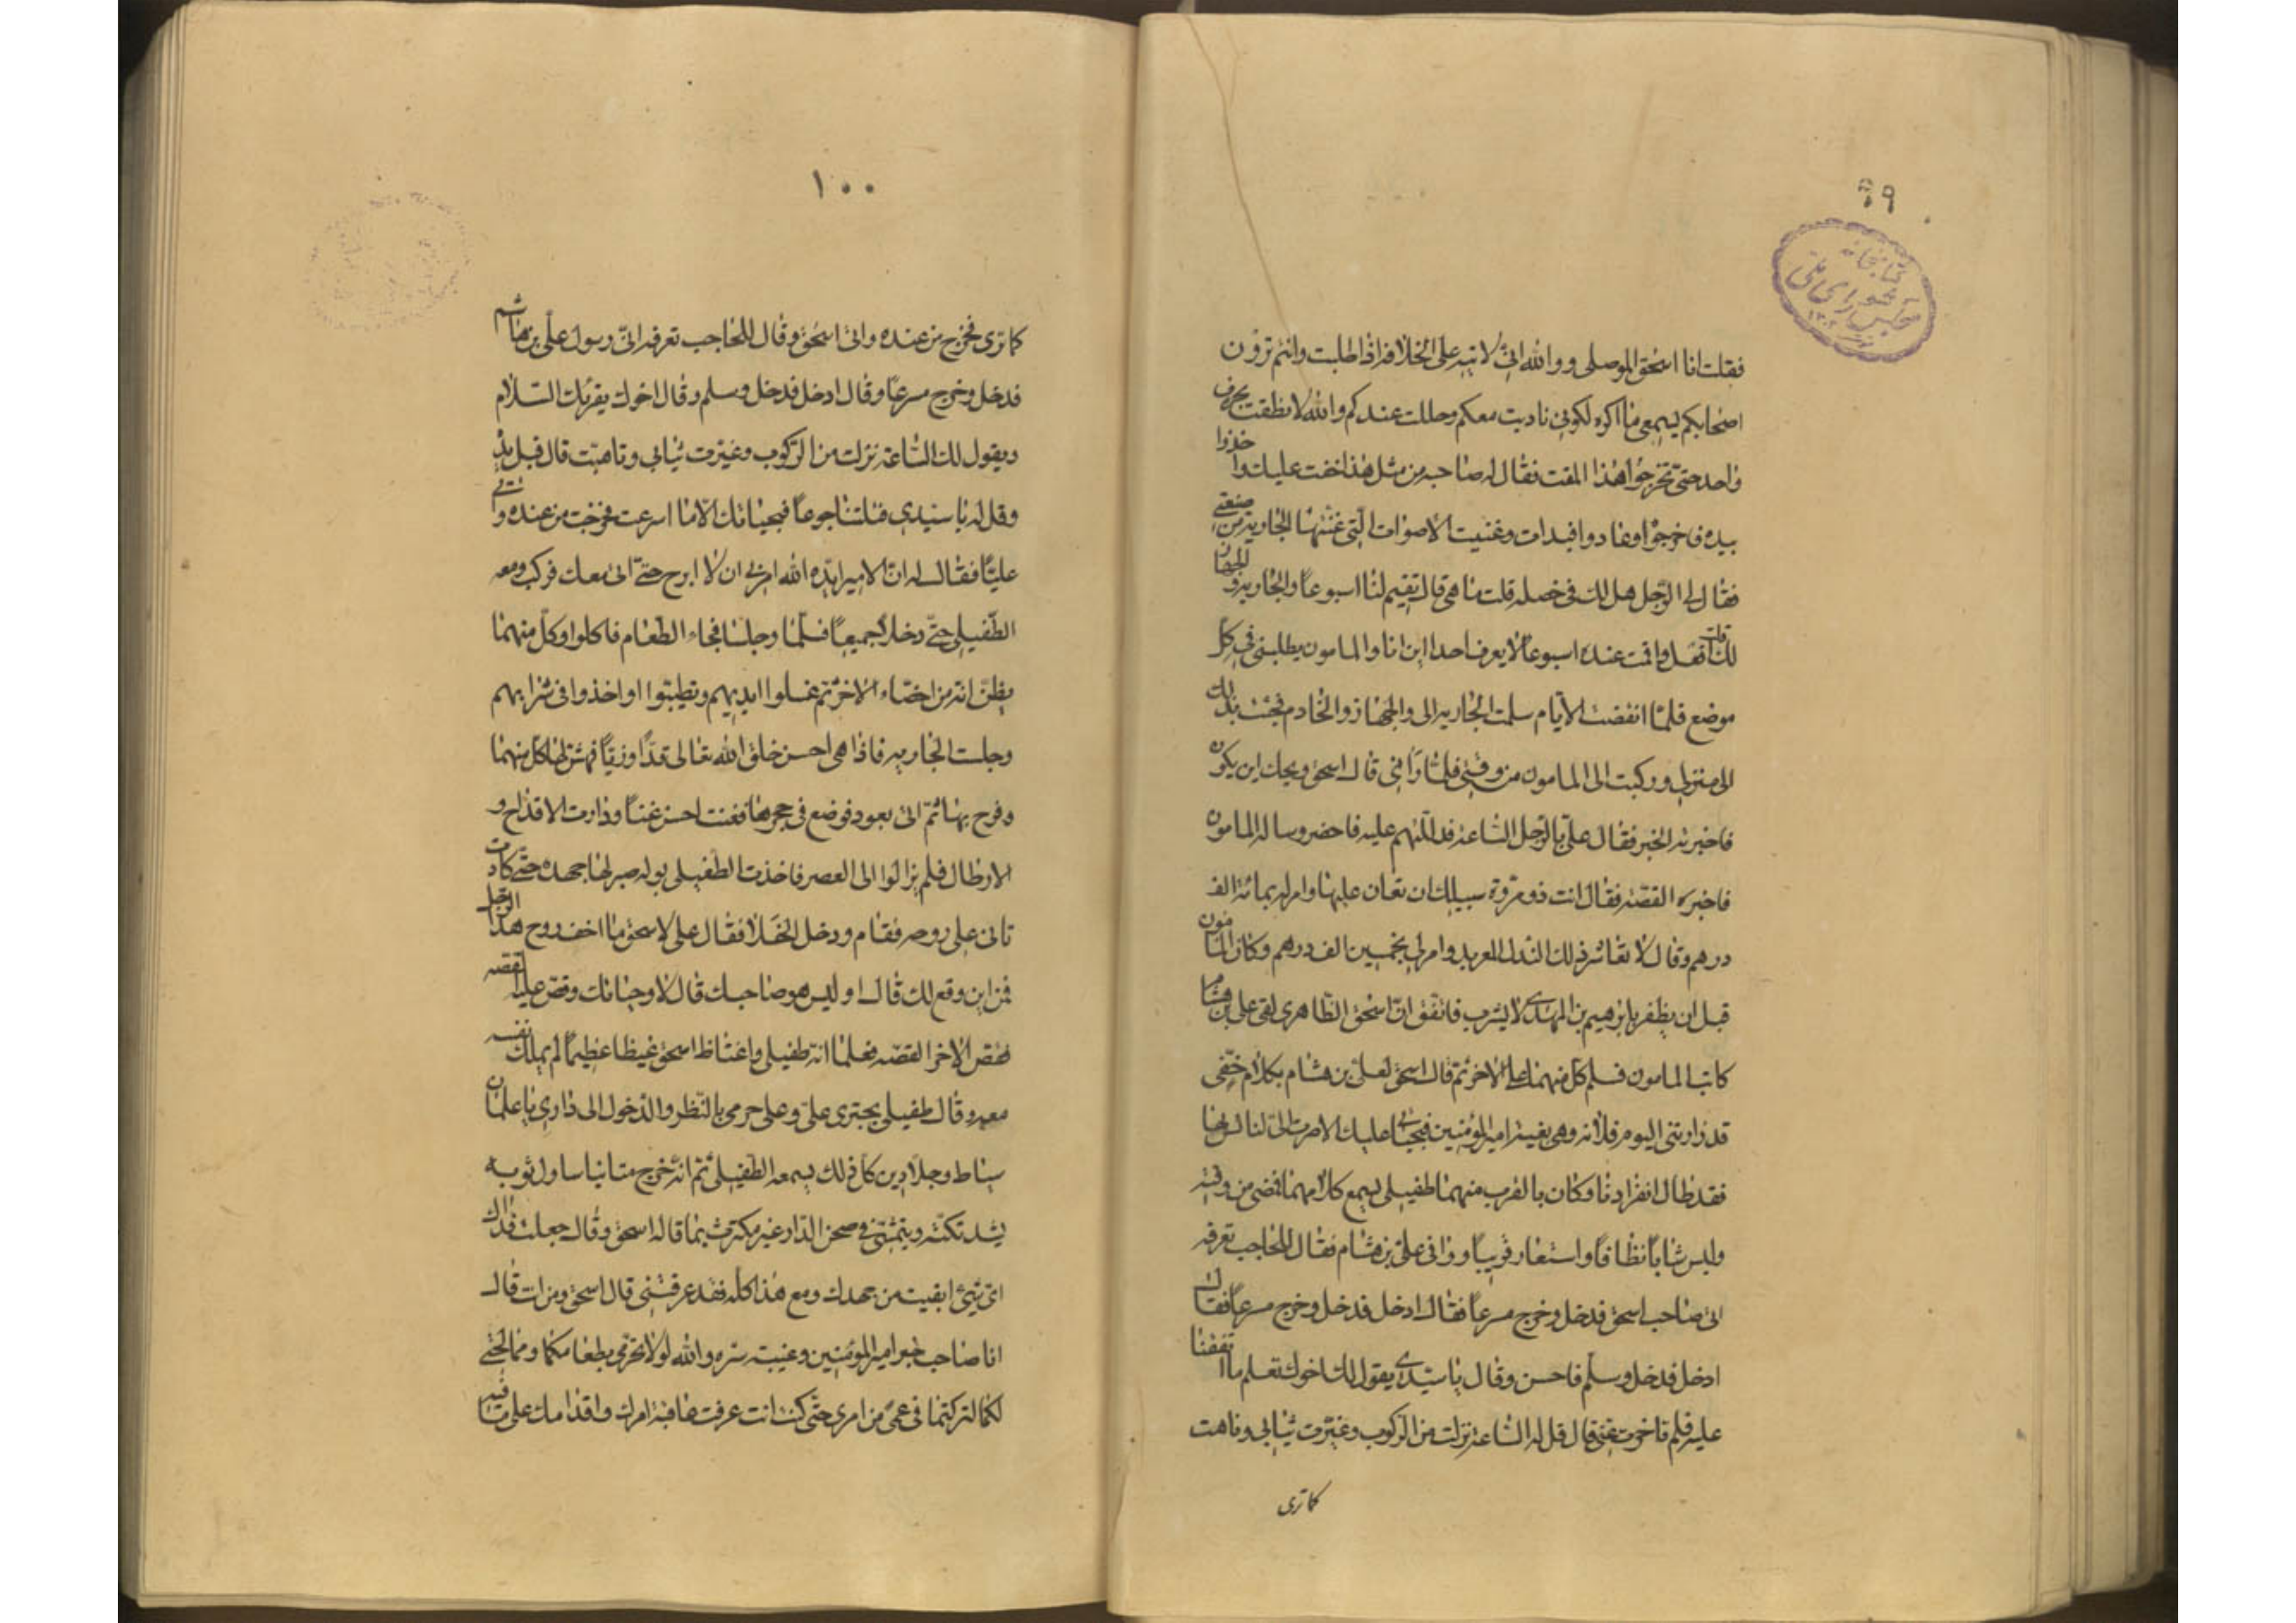 ٩٩
كتابخانه
مجلس شورای ملی
فقلت انا اسحق الموصلی و والله انی لاتیه علی الخلافة اذا طلبت وانتم ترون
اصحابکم لیسمعی ما اکره لکونی نادیت معکم وحللت عندکم والله لا نطقت بحرف
واحد حتی تخرجوا هذا المقت فقال له صاحبه من مثل هذا خفت علیک واخذوا
بیده فاخرجوا وعادوا فبدات وغنیت الاصوات التی غنتها الجاریة من صنعتی
فقال لی الرجل هل لک فی خصلة قلت ما هی قال تقیم لنا اسبوعا والجاریة والجهاز
لک قلت افعل واقمت عنده اسبوعا لا یعرف احدا این انا والمامون یطلبنی فی کل
موضع فلما انقضت الایام سلمت الجاریه الی والجهاز والخادم فجئت بذلک
الی منزلی ورکبت الی المامون من وقتی فلما رآنی قال اسحق ویحک این یکون
فاخبرته الخبر فقال علی بالرجل الساعة فدللتهم علیه فاحضر وساله المامون
فاخبره القصة فقال انت ذو مروة سبیلک ان تعان علیها وامر له بمائة الف
درهم وقال لا تعاشر ذلک النذل المعربد وامر لی بخمسین الف درهم وکان المامون
قبل ان یظفر بابرهیم بن المهدی لا یشرب فاتفق ان اسحق الظاهری لقی علی بن هشام
کاتب المامون فسلم کل منهما علی الاخر ثم قال اسحق لعلی بن هشام بکلام خفی
قد زارتنی الیوم فلانه وهی بغیة امیر المؤمنین فبحیاتی علیک الا صرت الی لنانس بها
فقد طال انفرادنا وکان بالقرب منهما طفیلی یسمع کلامهما فمضی من وقته
ولبس ثیابا نظافا واستعار فریسا ووافی علی بن هشام فقال للحاجب تعرفه
انی صاحب اسحق فدخل وخرج مسرعا فقال ادخل فدخل وخرج مسرعا فقال له
ادخل فدخل وسلم فاحسن وقال یا سیدی یقول لک اخوک تعلم ما اتفقنا
علیه فلم تاخرت عنی قال قل له الساعة نزلت من الرکوب وغیرت ثیابی وتاهبت
کما تری
١٠٠
کما تری فخرج من عنده واتی اسحق وقال للحاجب تعرفه انی رسول علی بن هاشم
فدخل وخرج مسرعا وقال ادخل فدخل وسلم وقال اخوک یقرئک السلام
ویقول لک الساعة نزلت من الرکوب وغیرت ثیابی وتاهبت قال قبل یده
وقل له یا سیدی قتلتنا جوعا فبحیاتک الا ما اسرعت فخرجت من عنده واتی
علیا فقال له ان الامیر ایده الله امرنی ان لا ابرح حتی اتی معک فرکب ومعه
الطفیلی حتی دخلا جمیعا فسلما وجلسا فجاء الطعام فاکلوا وکل منهما
یظن انه من اخصاء الاخر ثم غسلوا ایدیهم وتطیبوا واخذوا فی شرابهم
وجلست الجاریه فاذا هی احسن خلق الله تعالی قدا وزیا فهش لها کل منهما
وفرح بها ثم اتی بعود فوضع فی حجرها فغنت احسن غنا ودارت الاقداح و
الارطال فلم یزالوا الی العصر فاخذت الطفیلی بوله صبر لها جهده حتی کادت
تاتی علی روحه فقام ودخل الخلا فقال علی لاسحق ما اخف روح هذا الرجل
فمن این وقع لک قال او لیس هو صاحبک قال لا وحیاتک وقص علیه القصه
فقص الاخر القصه فعلما انه طفیلی واغتاظ اسحق غیظا عظیما لم یملک نفسه
معه وقال طفیلی یجتری علی وعلی حرمی بالنظر والدخول الی داری یا غلمان
سیاط وجلادین کل ذلک یسمعه الطفیلی ثم انه خرج متانیا ساول ثوبه
یشد تکته ویتمشی فی صحن الدار غیر مکترث بما قاله اسحق وقال جعلت فداک
ای شیء ابقیت من جهدک ومع هذا کله فقد عرفتنی قال اسحق ومن انت قال
انا صاحب خبر امیر المؤمنین وغیبته سره والله لولا تحرمی بطعامکما وممالحتی
لکما لترکتما فی عمی من امری حتی کنت انت عرفت عاقبة امرک واقدامک علی ما فیه